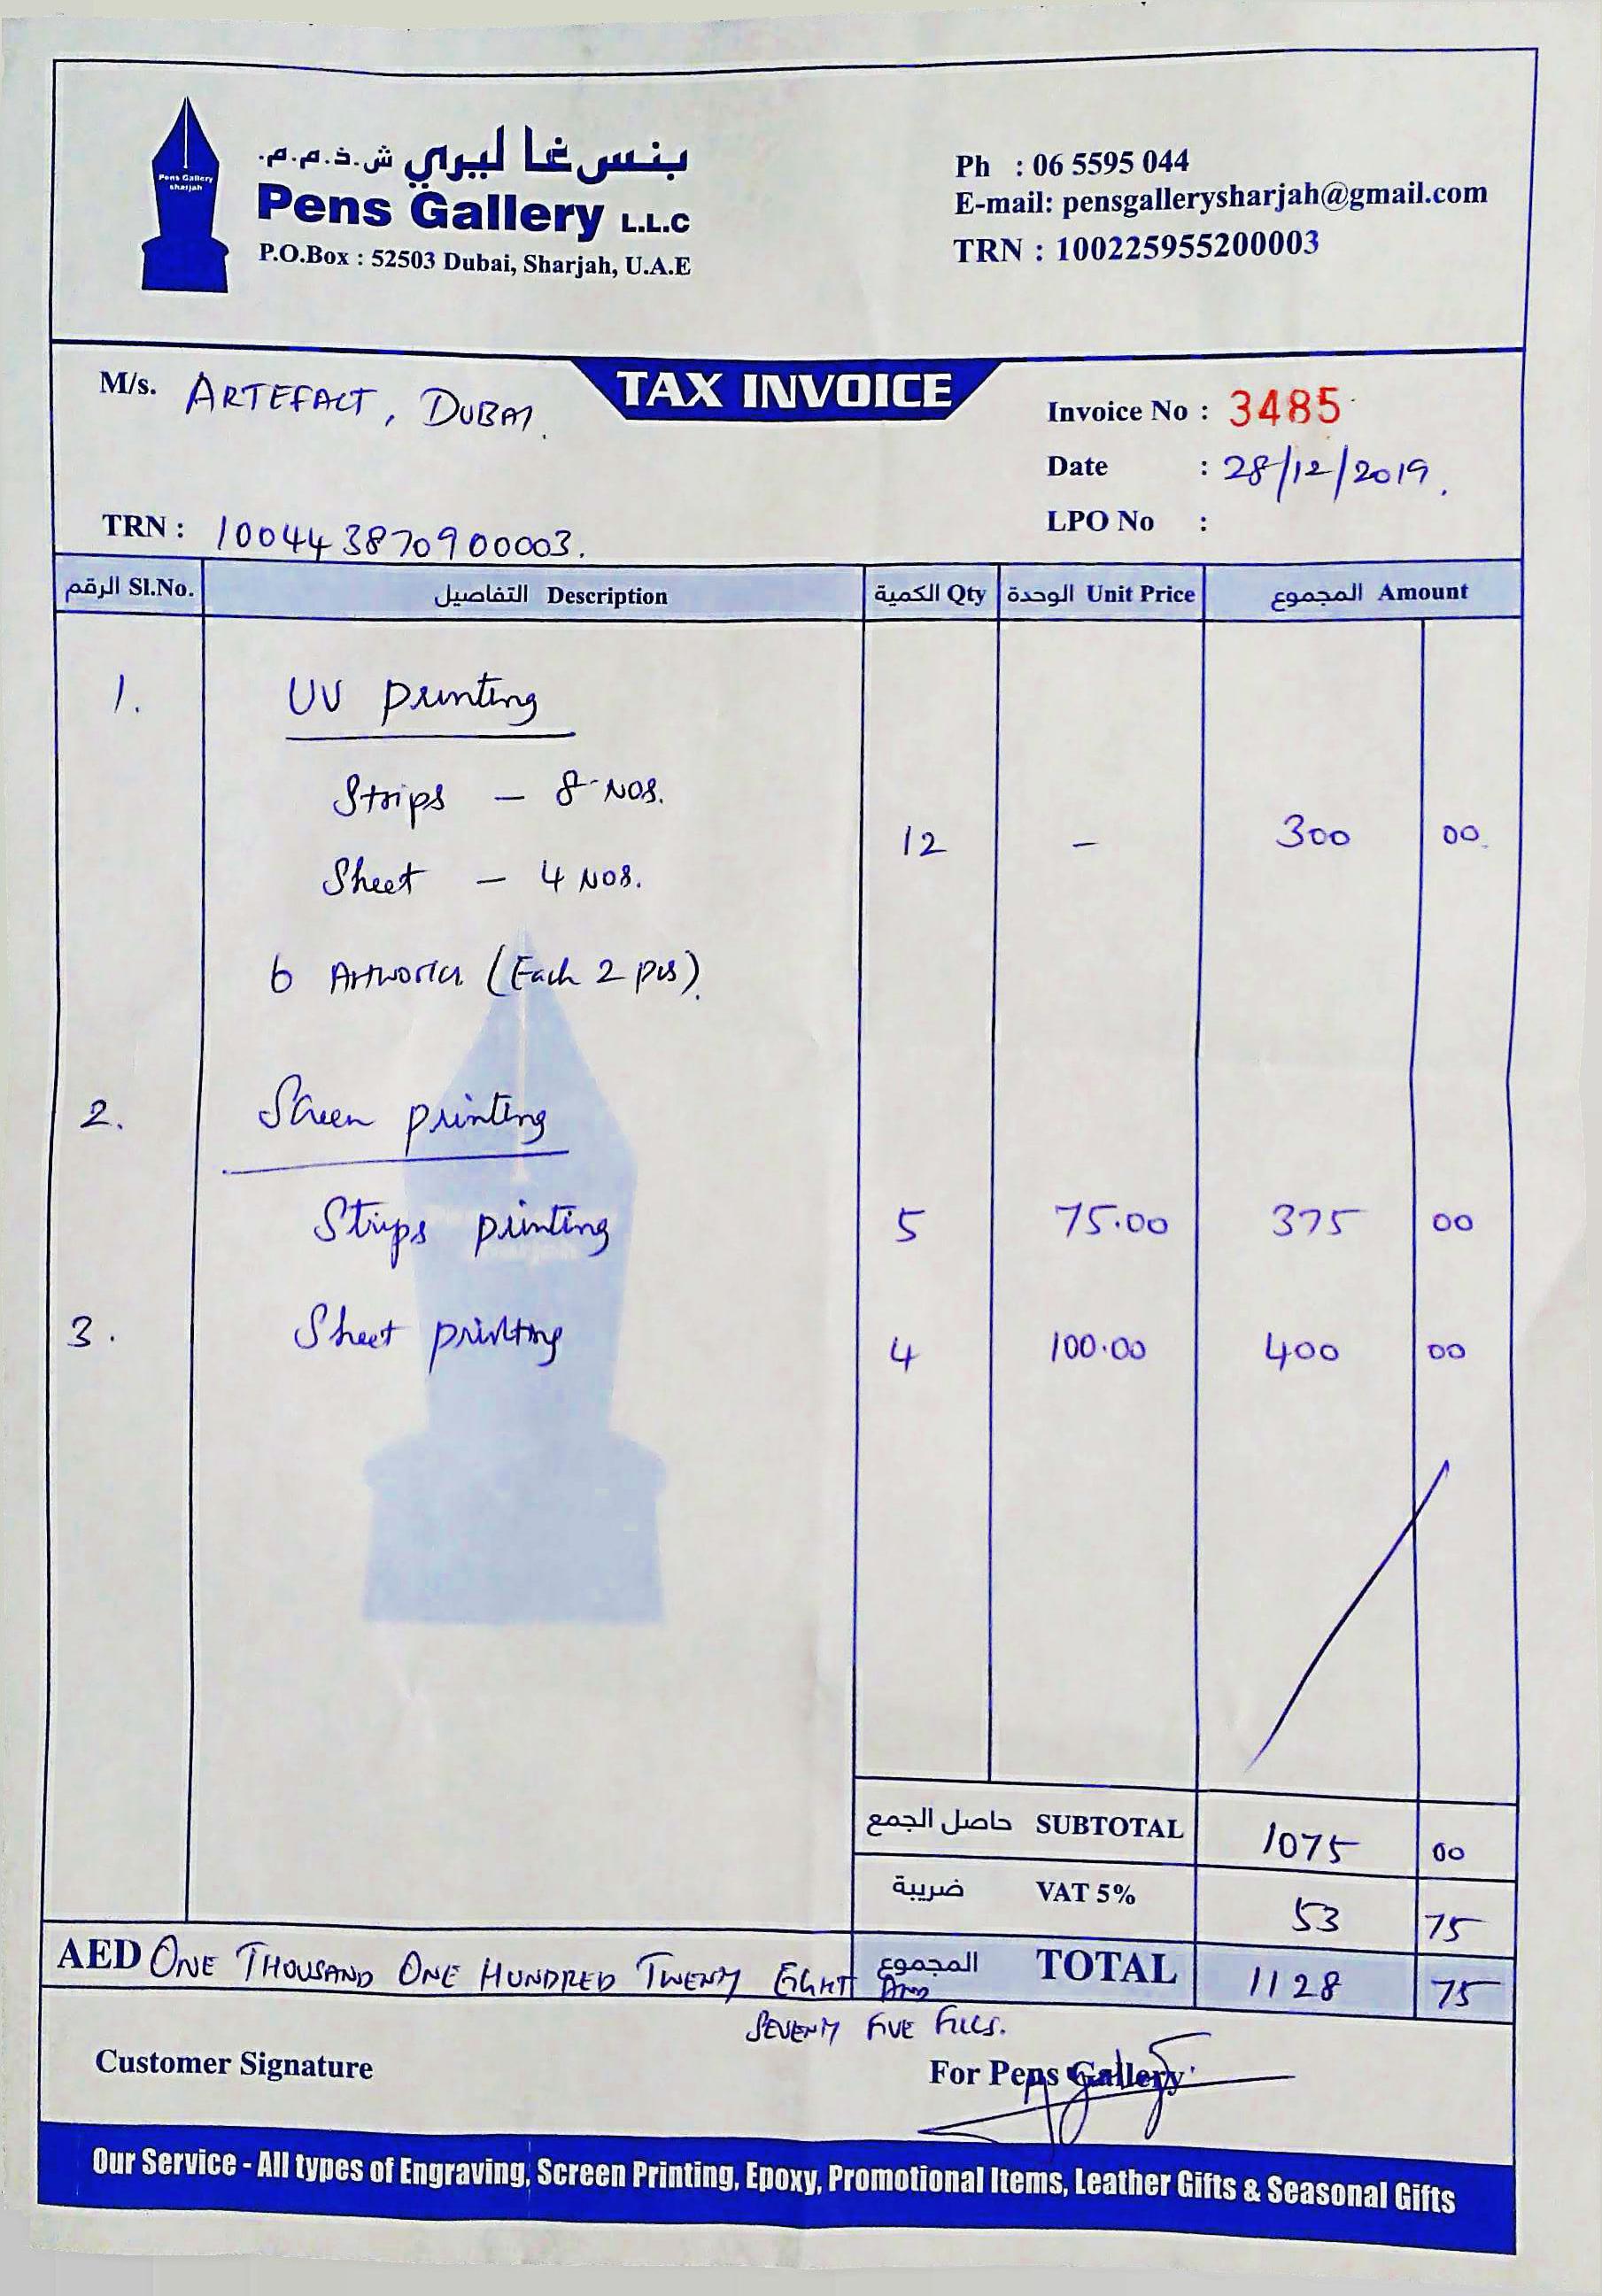 Pens Gallery
sharjah
بنس غاليري ش.ذ.م.م.
Pens Gallery L.L.C
P.O.Box : 52503 Dubai, Sharjah, U.A.E
Ph : 06 5595 044
E-mail: pensgallerysharjah@gmail.com
TRN : 100225955200003
TAX INVOICE
M/s. ARTEFACT, DUBAI.
Invoice No : 3485
Date : 28/12/2019.
LPO No :
TRN : 100443870900003.
الرقم Sl.No. التفاصيل Description الكمية Qty الوحدة Unit Price المجموع Amount
1. UV printing
Strips - 8 Nos.
12 - 300 00
Sheet - 4 Nos.
6 Artworks (Each 2 pcs).
2. Screen printing
Strips printing 5 75.00 375 00
3. Sheet printing 4 100.00 400 00
حاصل الجمع SUBTOTAL 1075 00
ضريبة VAT 5% 53 75
AED ONE THOUSAND ONE HUNDRED TWENTY EIGHT AND
المجموع TOTAL 1128 75
SEVENTY FIVE FILLS.
Customer Signature
For Pens Gallery
Our Service - All types of Engraving, Screen Printing, Epoxy, Promotional Items, Leather Gifts & Seasonal Gifts